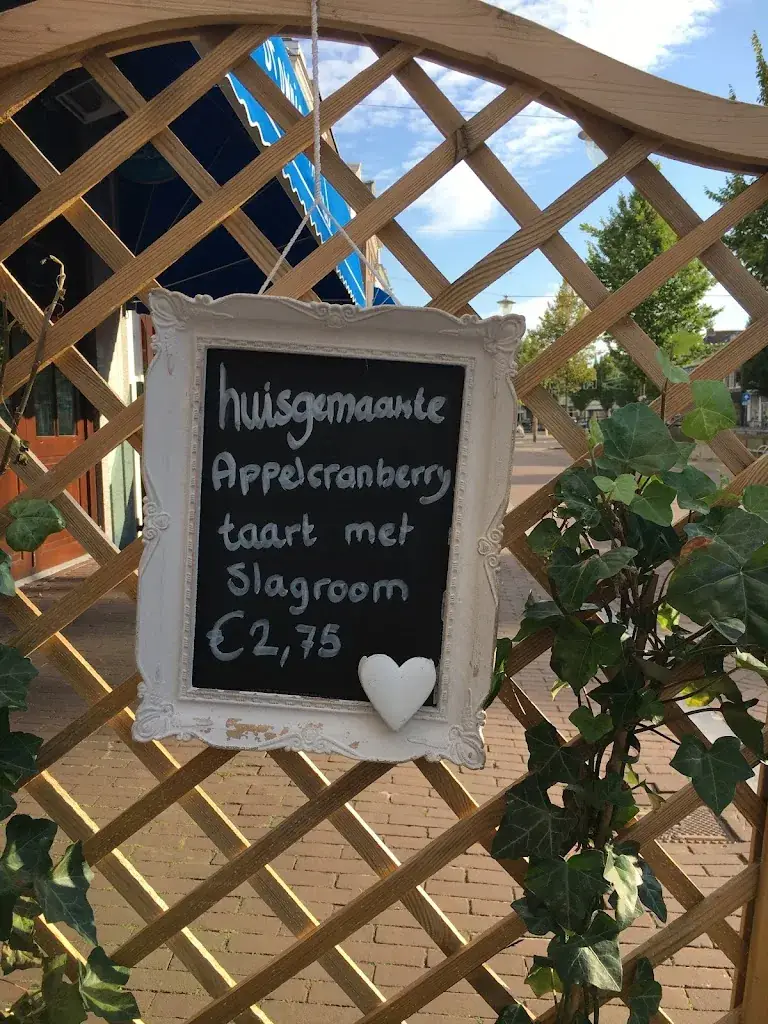 huisgemaakte
Appelcranberry
taart met
Slagroom
€2,75